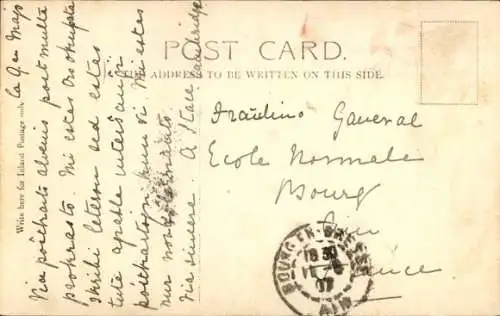 POST CARD.
THE ADDRESS TO BE WRITTEN ON THIS SIDE.
Write here for Inland Postage only
la 9en Majo
Via poŝtkarto alvenis post multa
prokrasto. Mi estas tro okupata
skribi leteron sed estas
tute apable interŝanĝi
poŝtkartojn kun vi. Mi estas
nur nova
Via sincere. A Stace
Cambridge
Fraŭlino Gaveral
Ecole Normale
Bourg
Ain
France
BOURG-EN-BRESSE
18 30
07
AIN